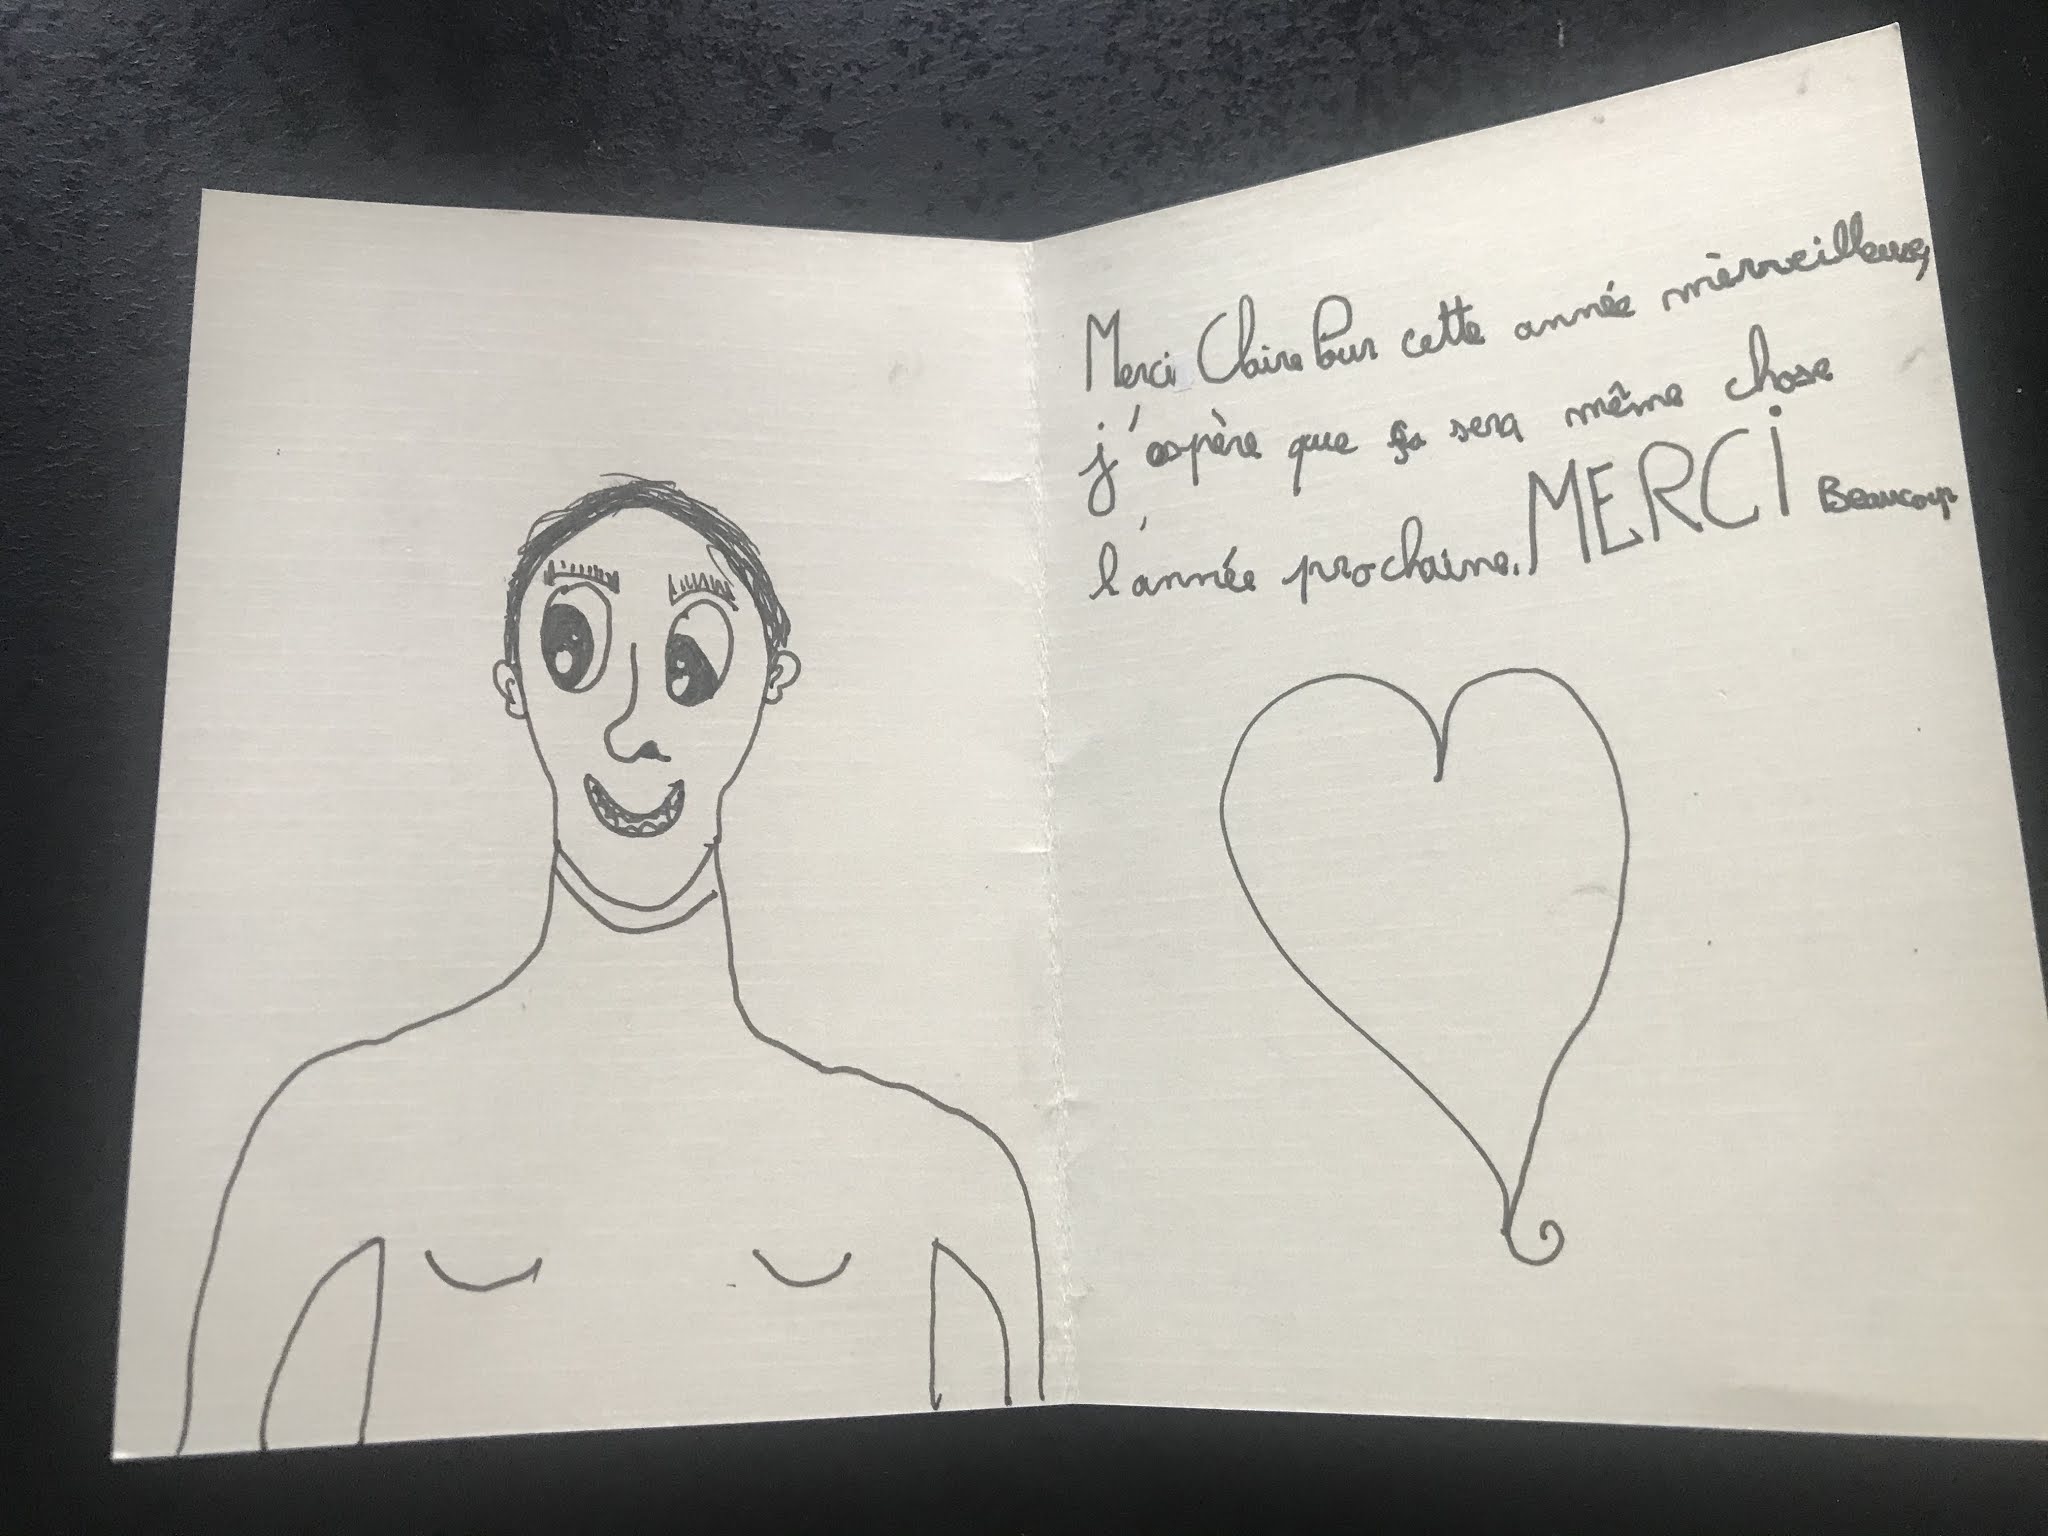 Merci Claire Pour cette année mèrveilleuse,
j'éspère que ça sera même chose
l'année prochaine. MERCI Beaucoup